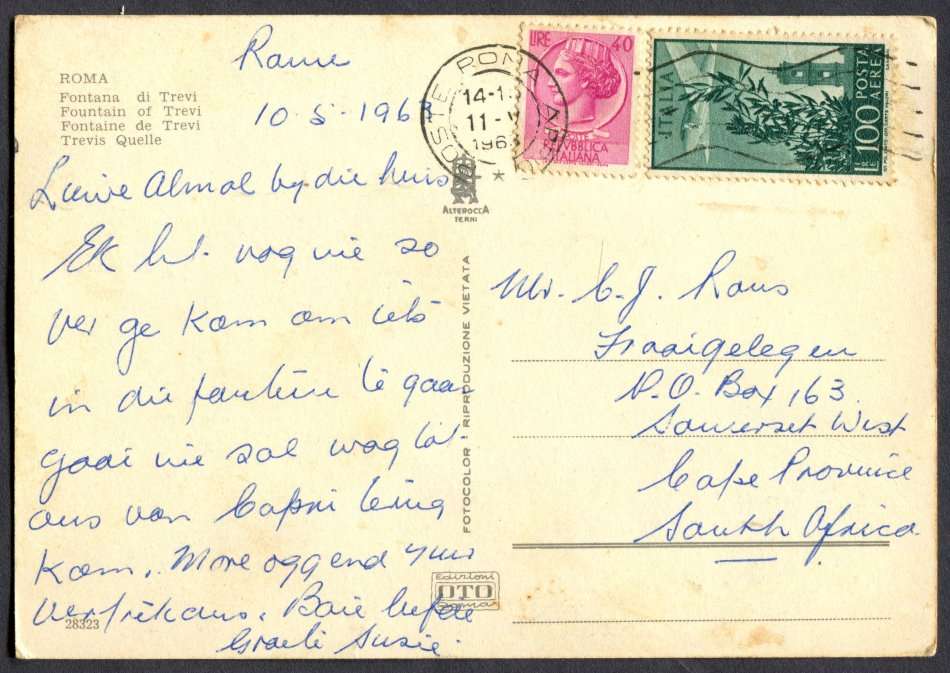 Rome
10-5-196
ROMA
Fontana di Trevi
Fountain of Trevi
Fontaine de Trevi
Trevis Quelle
Liewe Almal by die huis
Ek het nog nie so
ver ge kom om iets
in die fontein te gaan
gooi nie sal wag tot
ons van Capri terug
kom. More oggend 7 uur
vertrek ons. Baie liefde
Susie.
28323
ROMA
14-1
11-V
196
ALTEROCCA
TERNI
FOTOCOLOR - RIPRODUZIONE VIETATA
Edizioni
OTO
Roma
LIRE 40
REPVBBLICA
ITALIANA
ITALIA
POSTA
AEREA
LIRE 100
Mr. C. J. Raus
Fraaigelegen
P.O. Box 163.
Somerset West
Cape Province
South Africa